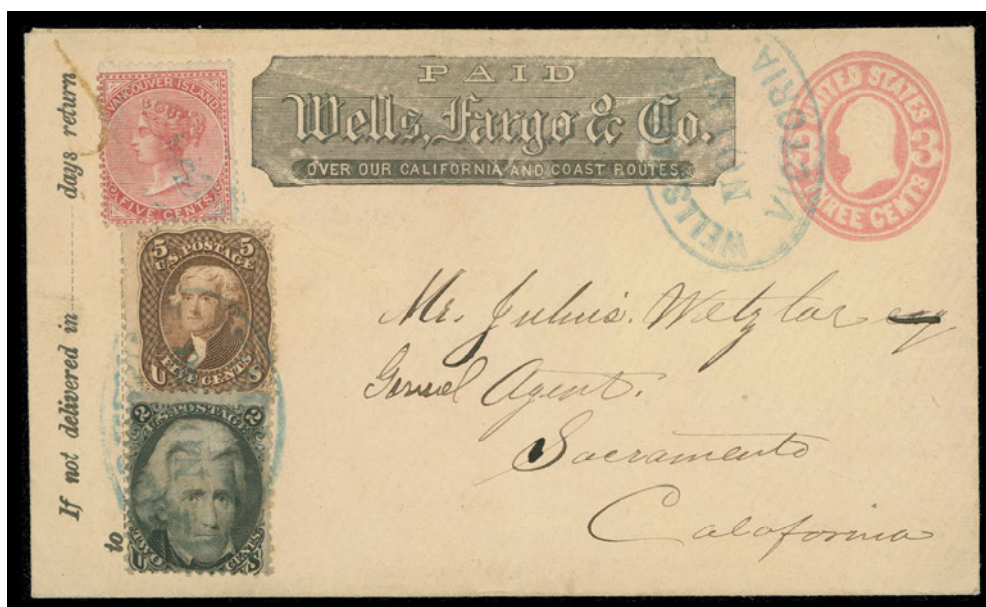 If not delivered in days return
to
VANCOUVER ISLAND
FIVE CENTS
5 5
U.S. POSTAGE
FIVE CENTS
U S
2 2
U.S. POSTAGE
TWO CENTS
U S
PAID
Wells, Fargo & Co.
OVER OUR CALIFORNIA AND COAST ROUTES.
WELLS
VICTORIA.
UNITED STATES
3 3
THREE CENTS
Mr. Julius. Wetzlar
Agent.
Sacramento
California